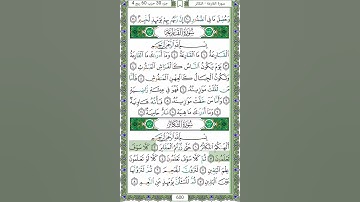 جزء 30 حزب 60
وَحُصِّلَ مَا فِي الصُّدُورِ ۝ إِنَّ رَبَّهُم بِهِمْ يَوْمَئِذٍ لَّخَبِيرٌ ۝
سُورَةُ القَارِعَةِ
بِسْمِ اللَّهِ الرَّحْمَٰنِ الرَّحِيمِ
الْقَارِعَةُ ۝ مَا الْقَارِعَةُ ۝ وَمَا أَدْرَاكَ مَا الْقَارِعَةُ ۝
يَوْمَ يَكُونُ النَّاسُ كَالْفَرَاشِ الْمَبْثُوثِ ۝
وَتَكُونُ الْجِبَالُ كَالْعِهْنِ الْمَنفُوشِ ۝ فَأَمَّا مَن ثَقُلَتْ
مَوَازِينُهُ ۝ فَهُوَ فِي عِيشَةٍ رَّاضِيَةٍ ۝
وَأَمَّا مَنْ خَفَّتْ مَوَازِينُهُ ۝ فَأُمُّهُ هَاوِيَةٌ ۝
وَمَا أَدْرَاكَ مَا هِيَهْ ۝ نَارٌ حَامِيَةٌ ۝
سُورَةُ التَّكَاثُرِ
بِسْمِ اللَّهِ الرَّحْمَٰنِ الرَّحِيمِ
أَلْهَاكُمُ التَّكَاثُرُ ۝ حَتَّىٰ زُرْتُمُ الْمَقَابِرَ ۝ كَلَّا سَوْفَ
تَعْلَمُونَ ۝ ثُمَّ كَلَّا سَوْفَ تَعْلَمُونَ ۝ كَلَّا لَوْ تَعْلَمُونَ
عِلْمَ الْيَقِينِ ۝ لَتَرَوُنَّ الْجَحِيمَ ۝ ثُمَّ لَتَرَوُنَّهَا
عَيْنَ الْيَقِينِ ۝ ثُمَّ لَتُسْأَلُنَّ يَوْمَئِذٍ عَنِ النَّعِيمِ ۝
600